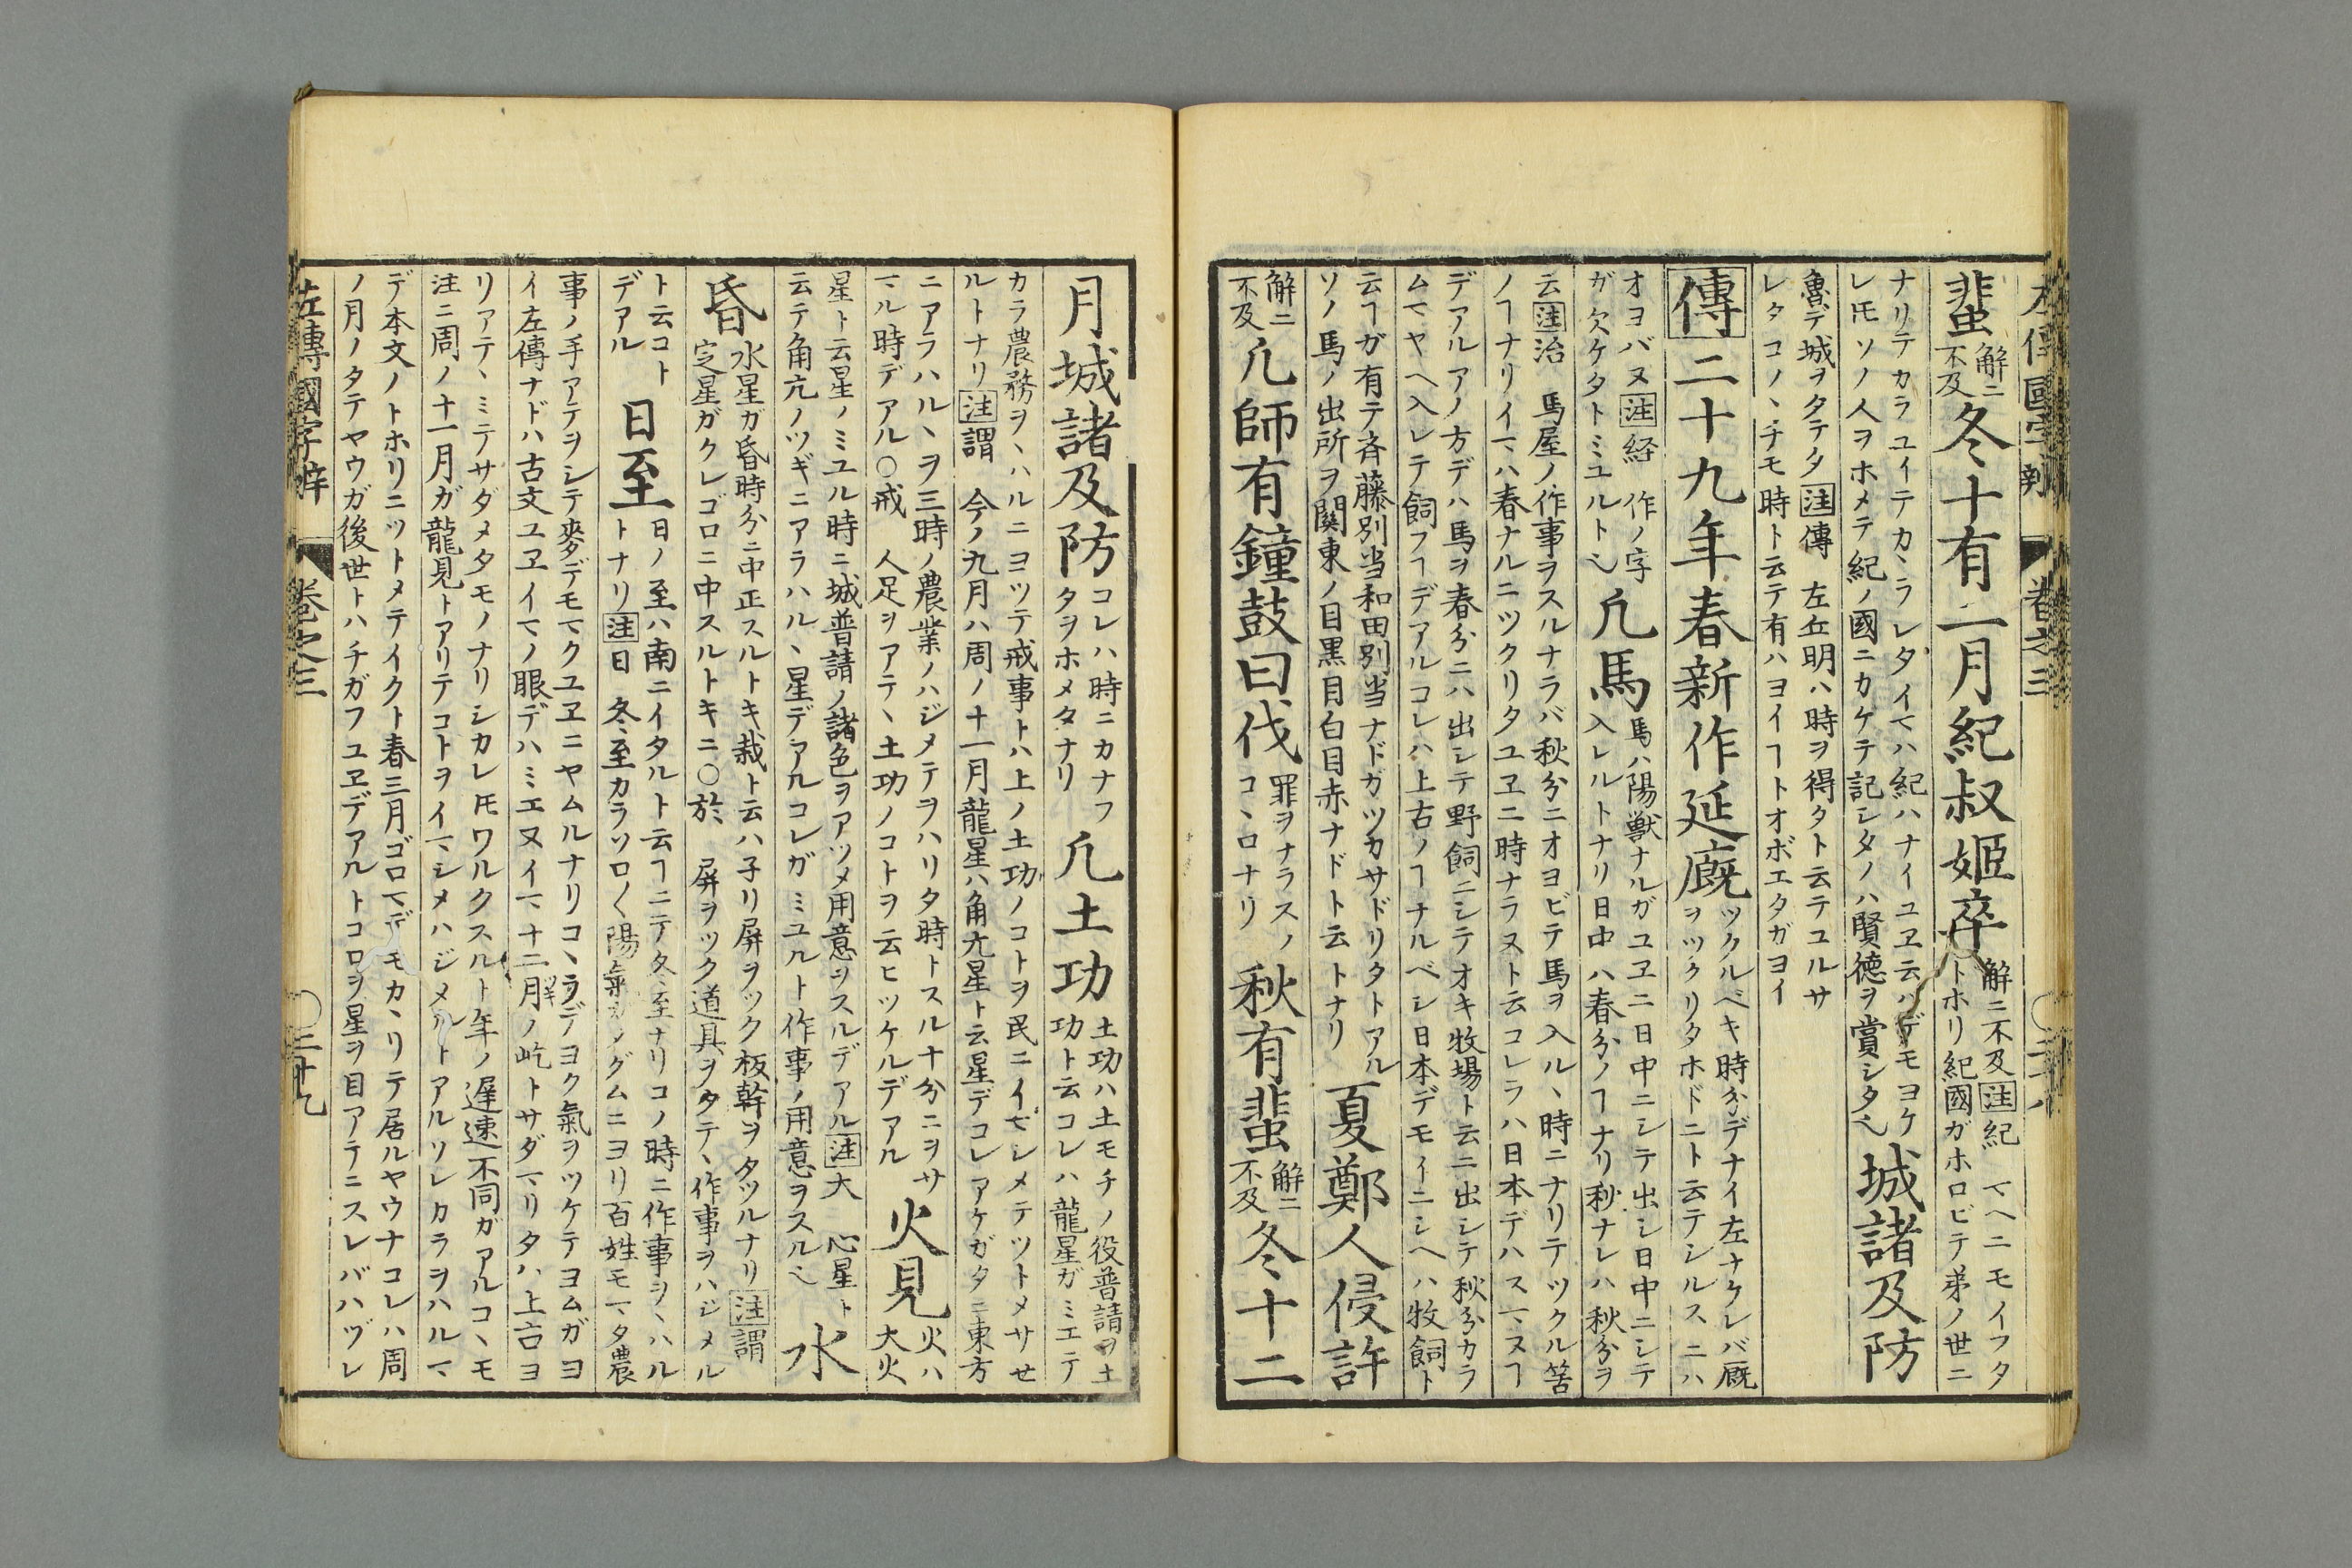 左傳國字辨 巻之三 ○三十八
蜚
解ニ
不及
冬十有二月紀叔姬卒
解ニ不及注紀 マヘニモイフタ
トホリ紀國ガホロビテ弟ノ世ニ
ナリテカラユイテカヽラレタイマハ紀ハナイユヱ云ハデモヨケ
レ𪜈ソノ人ヲホメテ紀ノ國ニカケテ記シタノハ賢徳ヲ賞シタ𛀁
城諸及防
魯デ城ヲタテタ注傳 左丘明ハ時ヲ得タト云テユルサ
レタコノヽチモ時ト云テ有ハヨイヿトオボエタガヨイ
傳二十九年春新作延廐
ツクルベキ時分デナイ左ナケレバ廐
ヲツクリタホドニト云テシルスニハ
オヨバヌ注経 作ノ字
ガ欠ケタトミユルト𛀁
凢馬
馬ハ陽獣ナルガユヱニ日中ニシテ出シ日中ニシテ
入レルトナリ日中ハ春分ノヿナリ秋ナレハ秋分ヲ
云注治 馬屋ノ作事ヲスルナラバ秋分ニオヨビテ馬ヲ入ルヽ時ニナリテツクル筈
ノヿナリイマハ春ナルニツクリタユヱニ時ナラヌト云コレラハ日本デハスマヌヿ
デアルアノ方デハ馬ヲ春分ニハ出シテ野飼ニシテオキ牧場ト云ニ出シテ秋分カラ
ムマヤヘ入レテ飼フヿデアルコレハ上古ノヿナルベシ日本デモイニシヘハ牧飼ト
云ヿガ有テ斉藤別当和田別当ナドガツカサドリタトアル
ソノ馬ノ出所ヲ関東ノ目黒目白目赤ナドト云トナリ
夏鄭人侵許
解ニ
不及
凢師有鐘鼓曰伐
罪ヲナラスノ
コヽロナリ
秋有蜚
解ニ
不及
冬十二
月城諸及防
コレハ時ニカナフ
タヲホメタナリ
凢土功
土功ハ土モチノ役普請ヲ土
功ト云コレハ龍星ガミエテ
カラ農務ヲヽハルニヨツテ戒事トハ上ノ土功ノコトヲ民ニイマシメテツトメサセ
ルトナリ注謂 今ノ九月ハ周ノ十一月龍星ハ角亢星ト云星デコレアケガタニ東方
ニアラハルヽヲ三時ノ農業ノハジメテヲハリタ時トスル十分ニヲサ
マル時デアル○戒 人足ヲアテヽ土功ノコトヲ云ヒツケルデアル
火見
火ハ
大火
星ト云星ノミユル時ニ城普請ノ諸色ヲアツメ用意ヲスルデアル注大 心星ト
云テ角亢ノツギニアラハルヽ星デアルコレガミユルト作事ノ用意ヲスル𛀁
水
昏
水星ガ昏時分ニ中正スルトキ栽ト云ハ子リ屏ヲツク板幹ヲタツルナリ注謂
定星ガクレゴロニ中スルトキニ○於 屏ヲツク道具ヲタテヽ作事ヲハジメル
ト云コト
デアル
日至
日ノ至ハ南ニイタルト云ヿニテ冬至ナリコノ時ニ作事ヲヽハル
トナリ注日 冬至カラソロ〱陽氣ガメグムニヨリ百姓モマタ農
事ノ手アテヲシテ麥デモマクユヱニヤムルナリコヽラデヨク氣ヲツケテヨムガヨ
イ左傳ナドハ古文ユヱイマノ眼デハミエヌイマ十二月ノ屹トサダマリタハ上古ヨ
リアテヽミテサダメタモノナリシカレ𪜈ワルクスルト年ノ遅速不同ガアルコヽモ
注ニ周ノ十一月ガ龍見トアリテコトヲイマシメハジメルトアルソレカラヲハルマ
デ本文ノトホリニツトメテイクト春三月ゴロマデモカヽリテ居ルヤウナコレハ周
ノ月ノタテヤウガ後世トハチガフユヱデアルトコロヲ星ヲ目アテニスレバハヅレ
左傳國字辨 巻之三 ○三十九